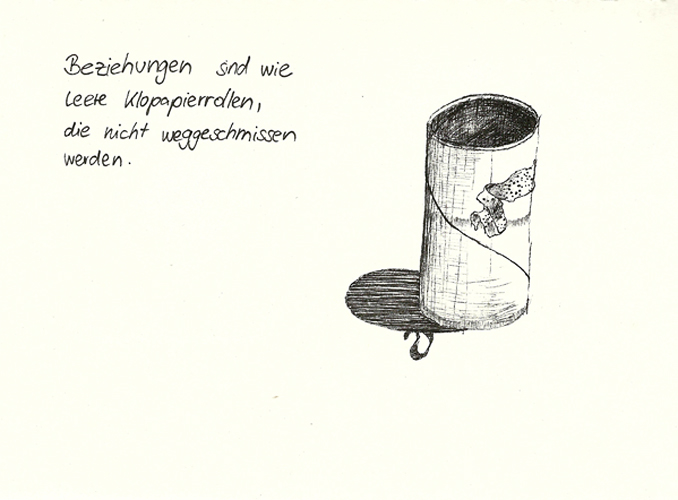 Beziehungen sind wie
leere Klopapierrollen,
die nicht weggeschmissen
werden.